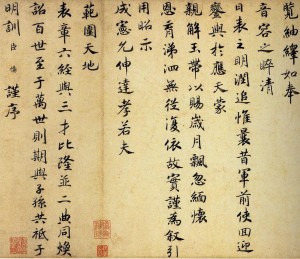 覽紬繹如奉
音容之睟清
日表之明潤追惟曩昔軍前使回迎
鑾輿於應天蒙
親解玉帶以賜歲月飄忽緬懷
恩育涕泗無從復依故實謹為叙引
用昭示
成憲允伸達孝若夫
範圍天地
表章六經與三才比隆並二典同煥
詔百世至于萬世則期與子孫共祗于
明訓臣 謹序